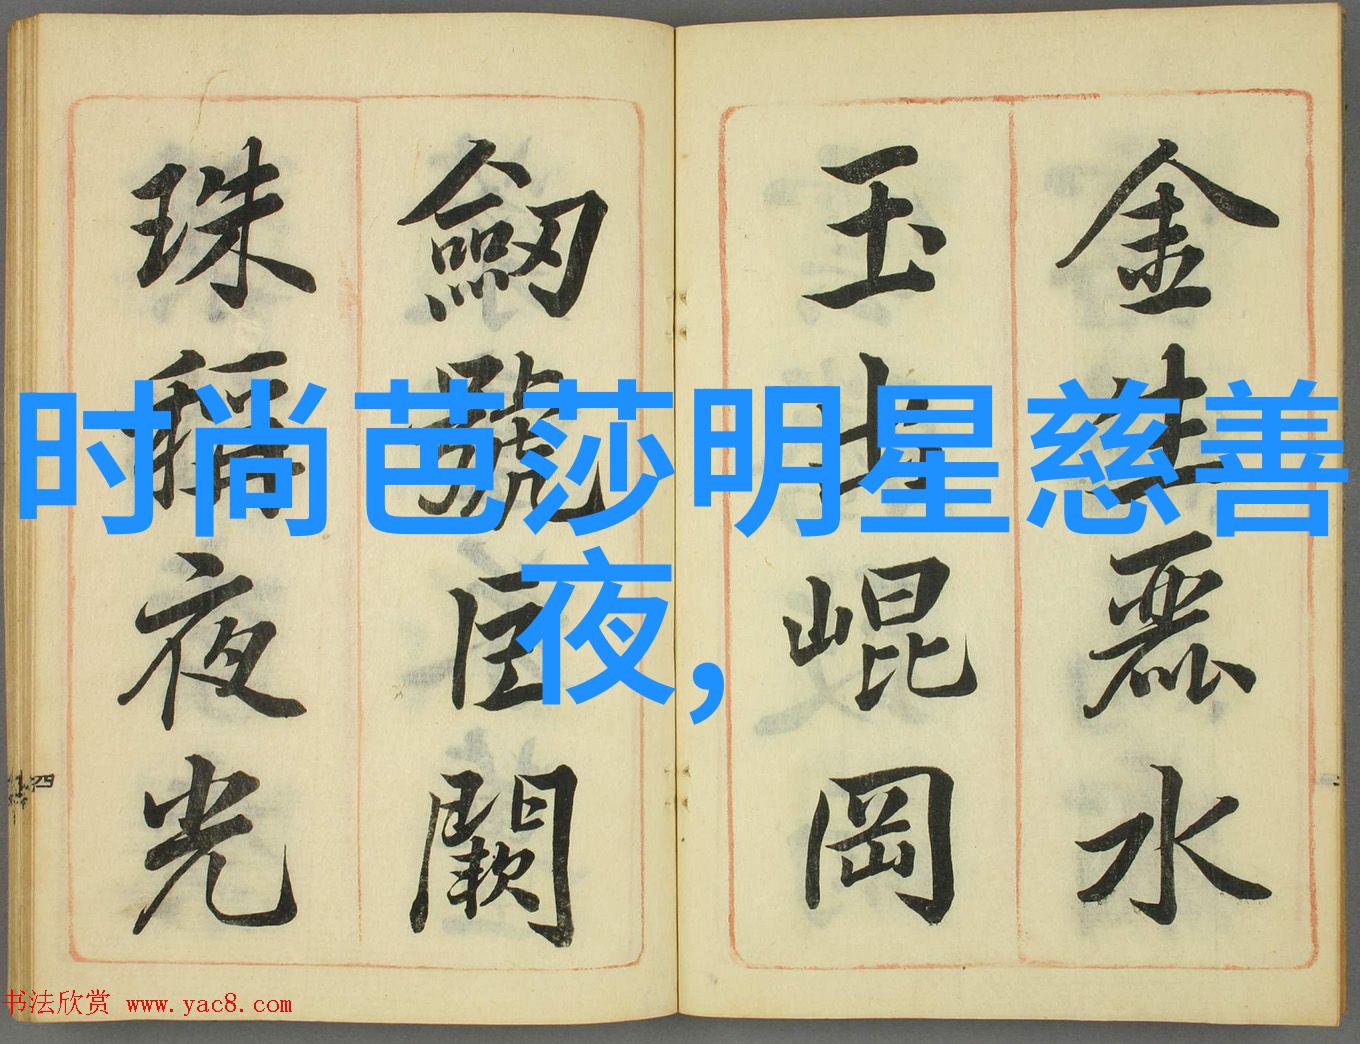 时尚芭莎明星慈善
夜,
金生麗水
玉出崐岡
劒號巨闕
珠稱夜光
四
书法欣赏 www.yac8.com